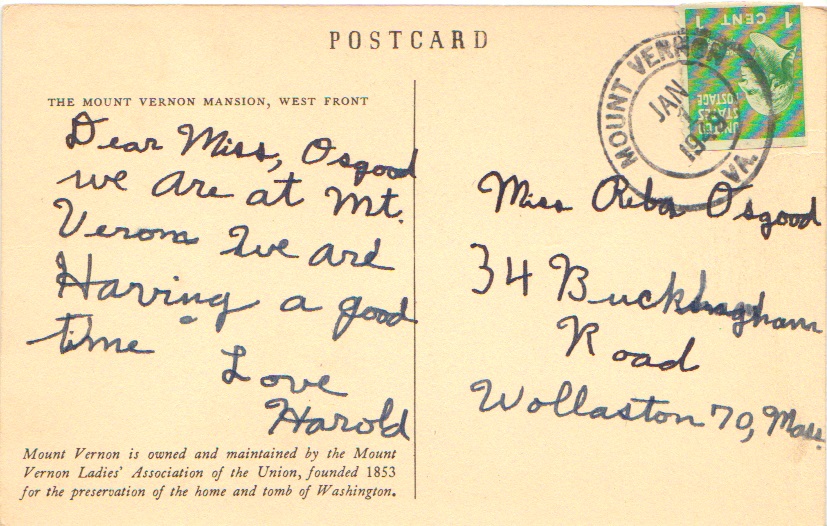 POSTCARD
THE MOUNT VERNON MANSION, WEST FRONT
Dear Miss, Osgood
we are at Mt.
Verom We are
Harving a good
time
Love
Harold
Mount Vernon is owned and maintained by the Mount
Vernon Ladies' Association of the Union, founded 1853
for the preservation of the home and tomb of Washington.
1 CENT 1
UNITED
STATES
POSTAGE
MOUNT VERNON
VA.
JAN
1949
Miss Reba Osgood
34 Buckingham
Road
Wollaston 70, Mass.